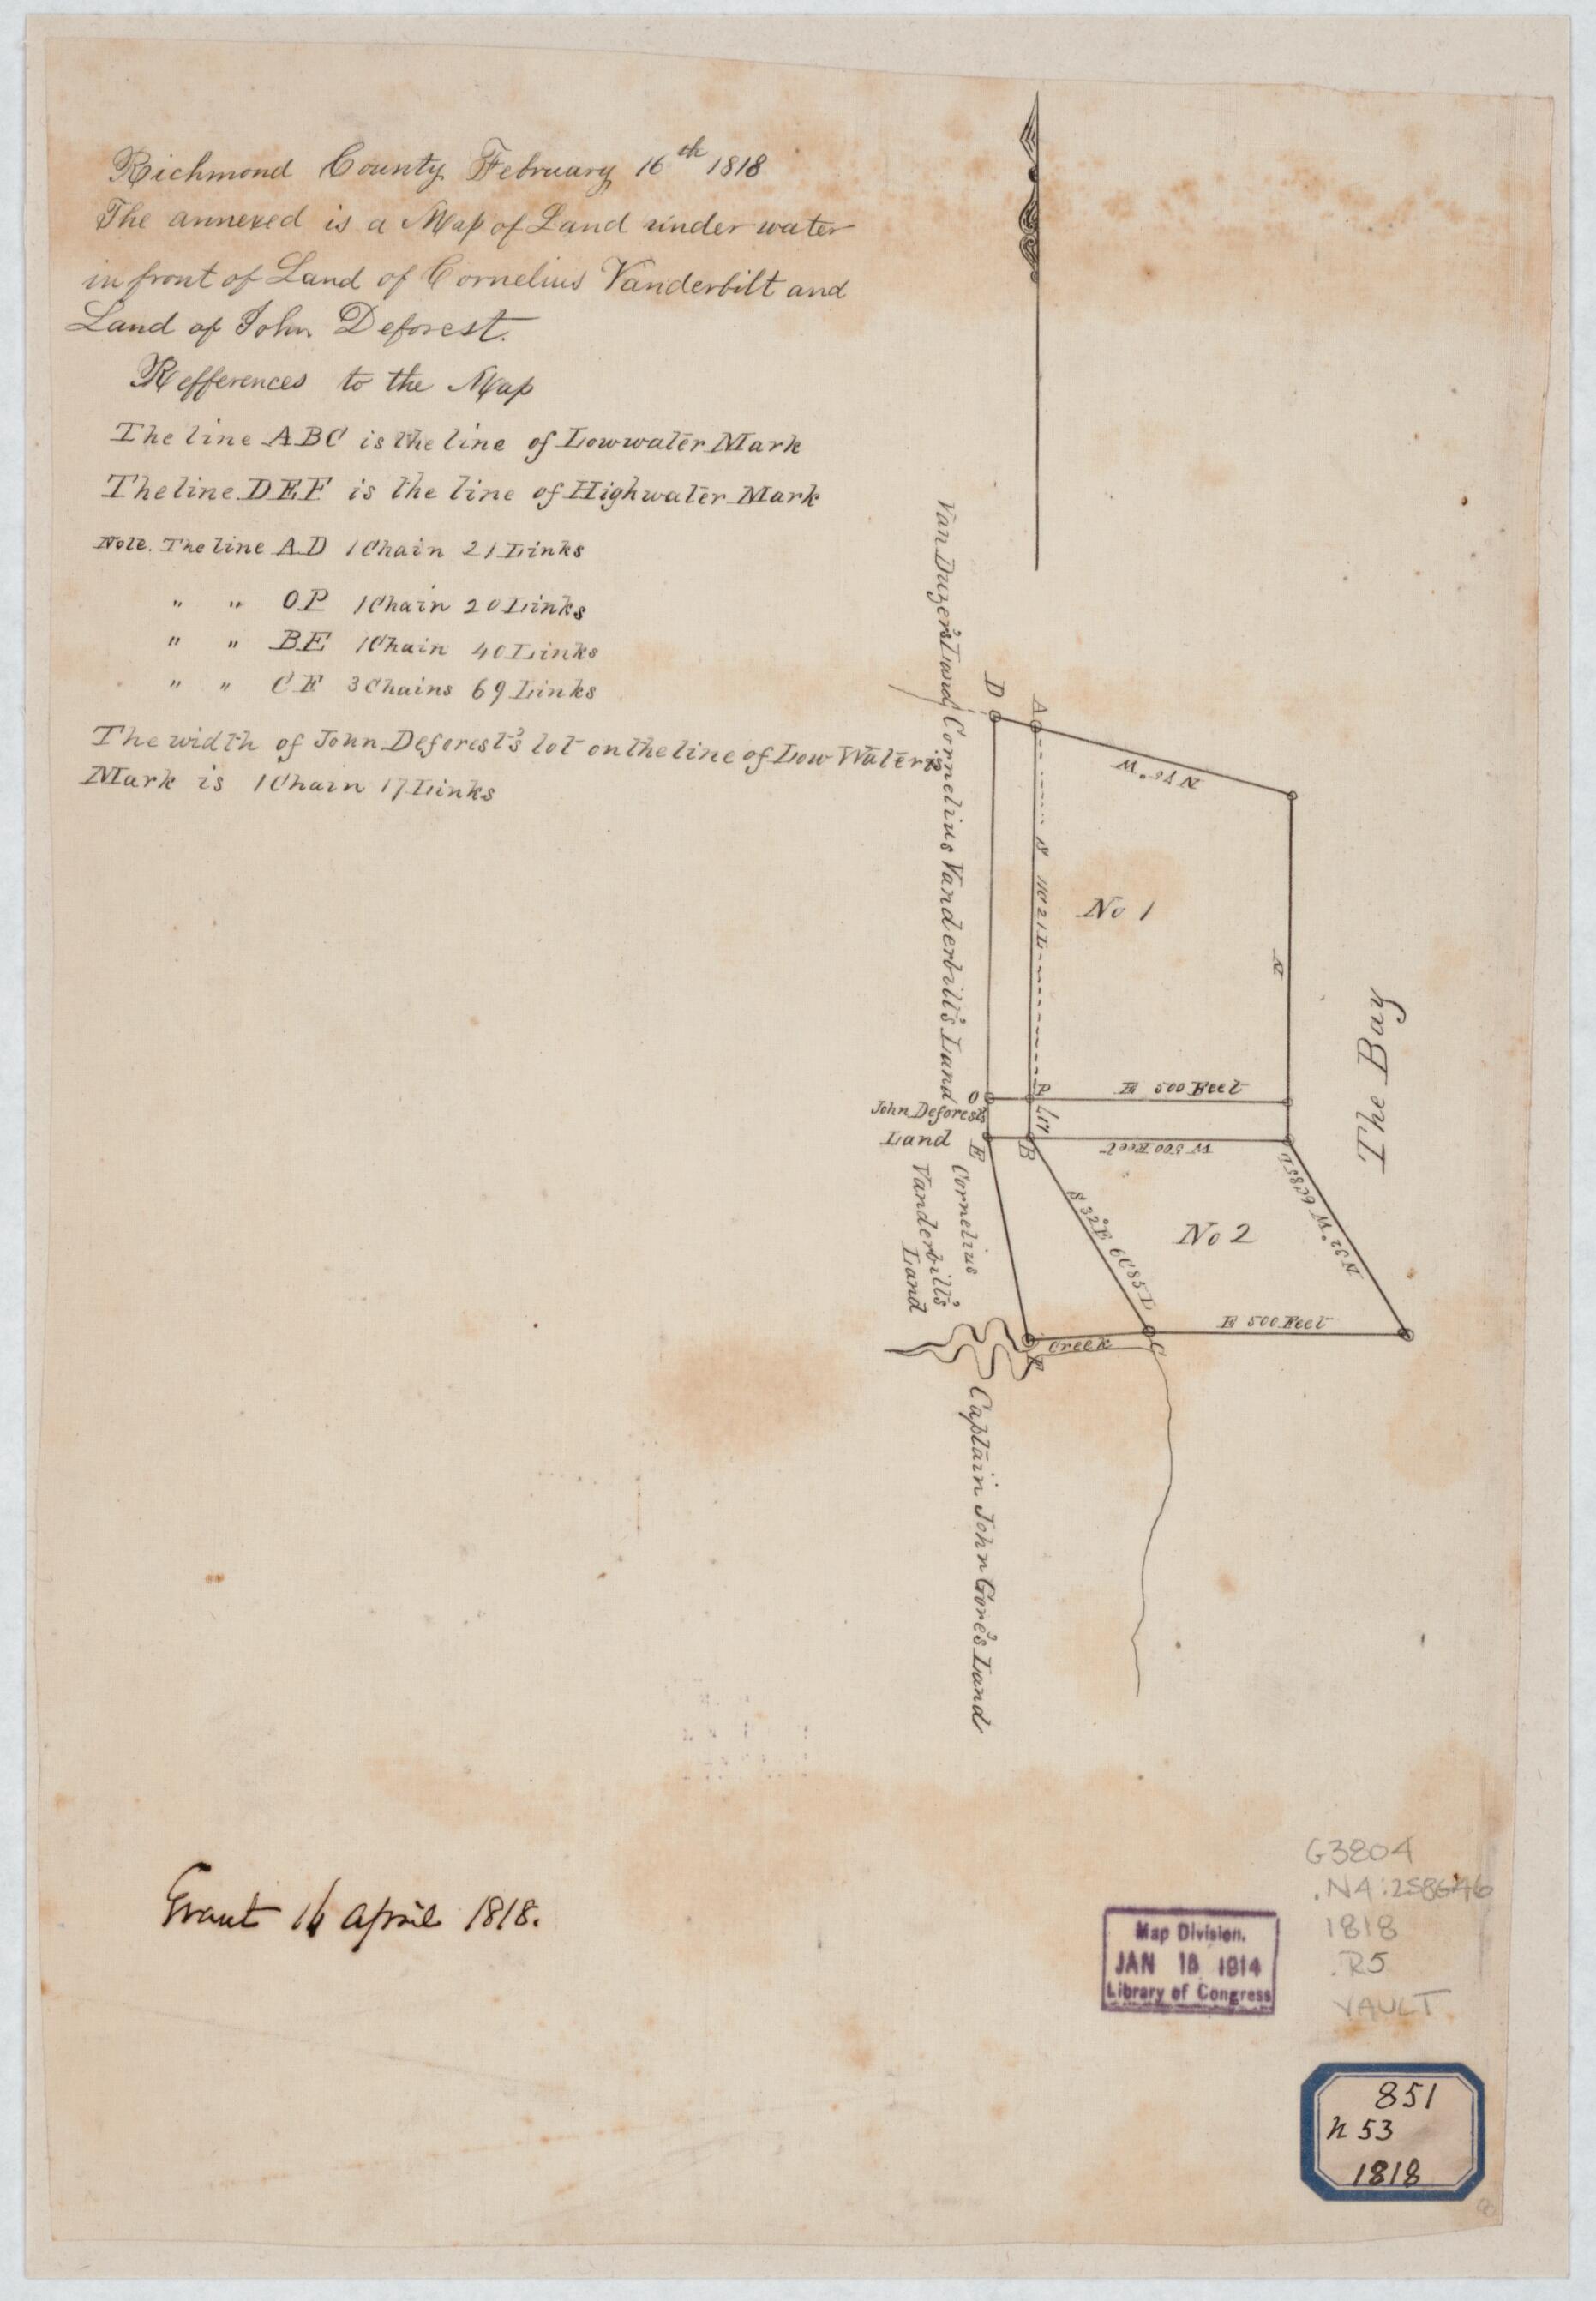 Richmond County February 16th 1818
The annexed is a Map of Land under water
in front of Land of Cornelius Vanderbilt and
Land of John Deforest.
Refferences to the Map
The line ABC is the line of Lowwater Mark
The line DEF is the line of Highwater Mark
Note. The line AD 1 Chain 21 Links
" " OP 1 Chain 20 Links
" " BE 1 Chain 40 Links
" " CF 3 Chains 69 Links
The width of John Deforest's lot on the line of Low Water is
Mark is 1 Chain 17 Links
Van Duzer's Land
D
A
N 76° W
Cornelius Vanderbilt's Land
S 11C 21L
No 1
N
The Bay
O
P
E 500 Feet
John Deforest's
Land
L17
E
B
W 500 Feet
Cornelius
Vanderbilt's
Land
S 32° E 6C 85 L
No 2
N 32° W 6C 85 L
E 500 Feet
Creek
F
C
Captain John Gore's Land
Grant 16 April 1818.
G3804
.N4:2S8G46
1818
.R5
VAULT
Map Division.
JAN 16 1914
Library of Congress
851
N 53
1818